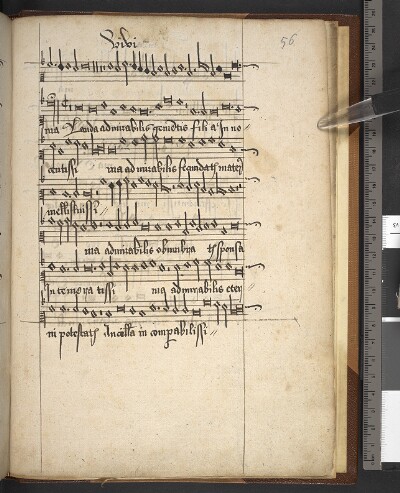 56
ma Uenda admirabilis genitoris filia In no
centissi ma admirabilis fecundath mater
intactissi
ma admirabilis obumbra th sponsa
In temeratissi ma admirabilis eter
ni potestath Ancilla in comparabilissi